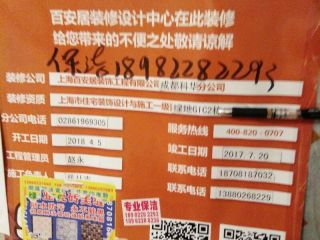 百安居装修设计中心在此装修
给您带来的不便之处敬请谅解
保洁18982282293
装修公司 上海百安居装饰工程有限公司成都科华分公司
装修资质 上海市住宅装饰设计与施工一级
绿地GIC2栋
分公司电话 02861969305
服务热线 400-820-0707
开工日期 2018.4.5
竣工日期 2017.7.20
工程管理员 赵永
联系电话 18708187032
施工负责人
联系电话 13880268229
专业保洁
189 8228 2293